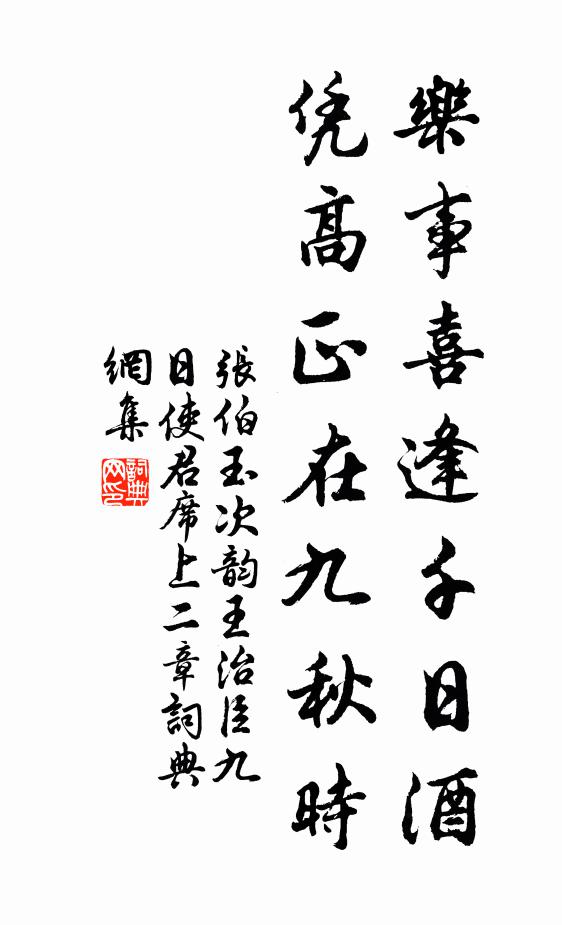 樂事喜逢千日酒
凭高正在九秋時
張伯玉次韵王治臣九
日使君席上二章詞典
網集
詞典
网印